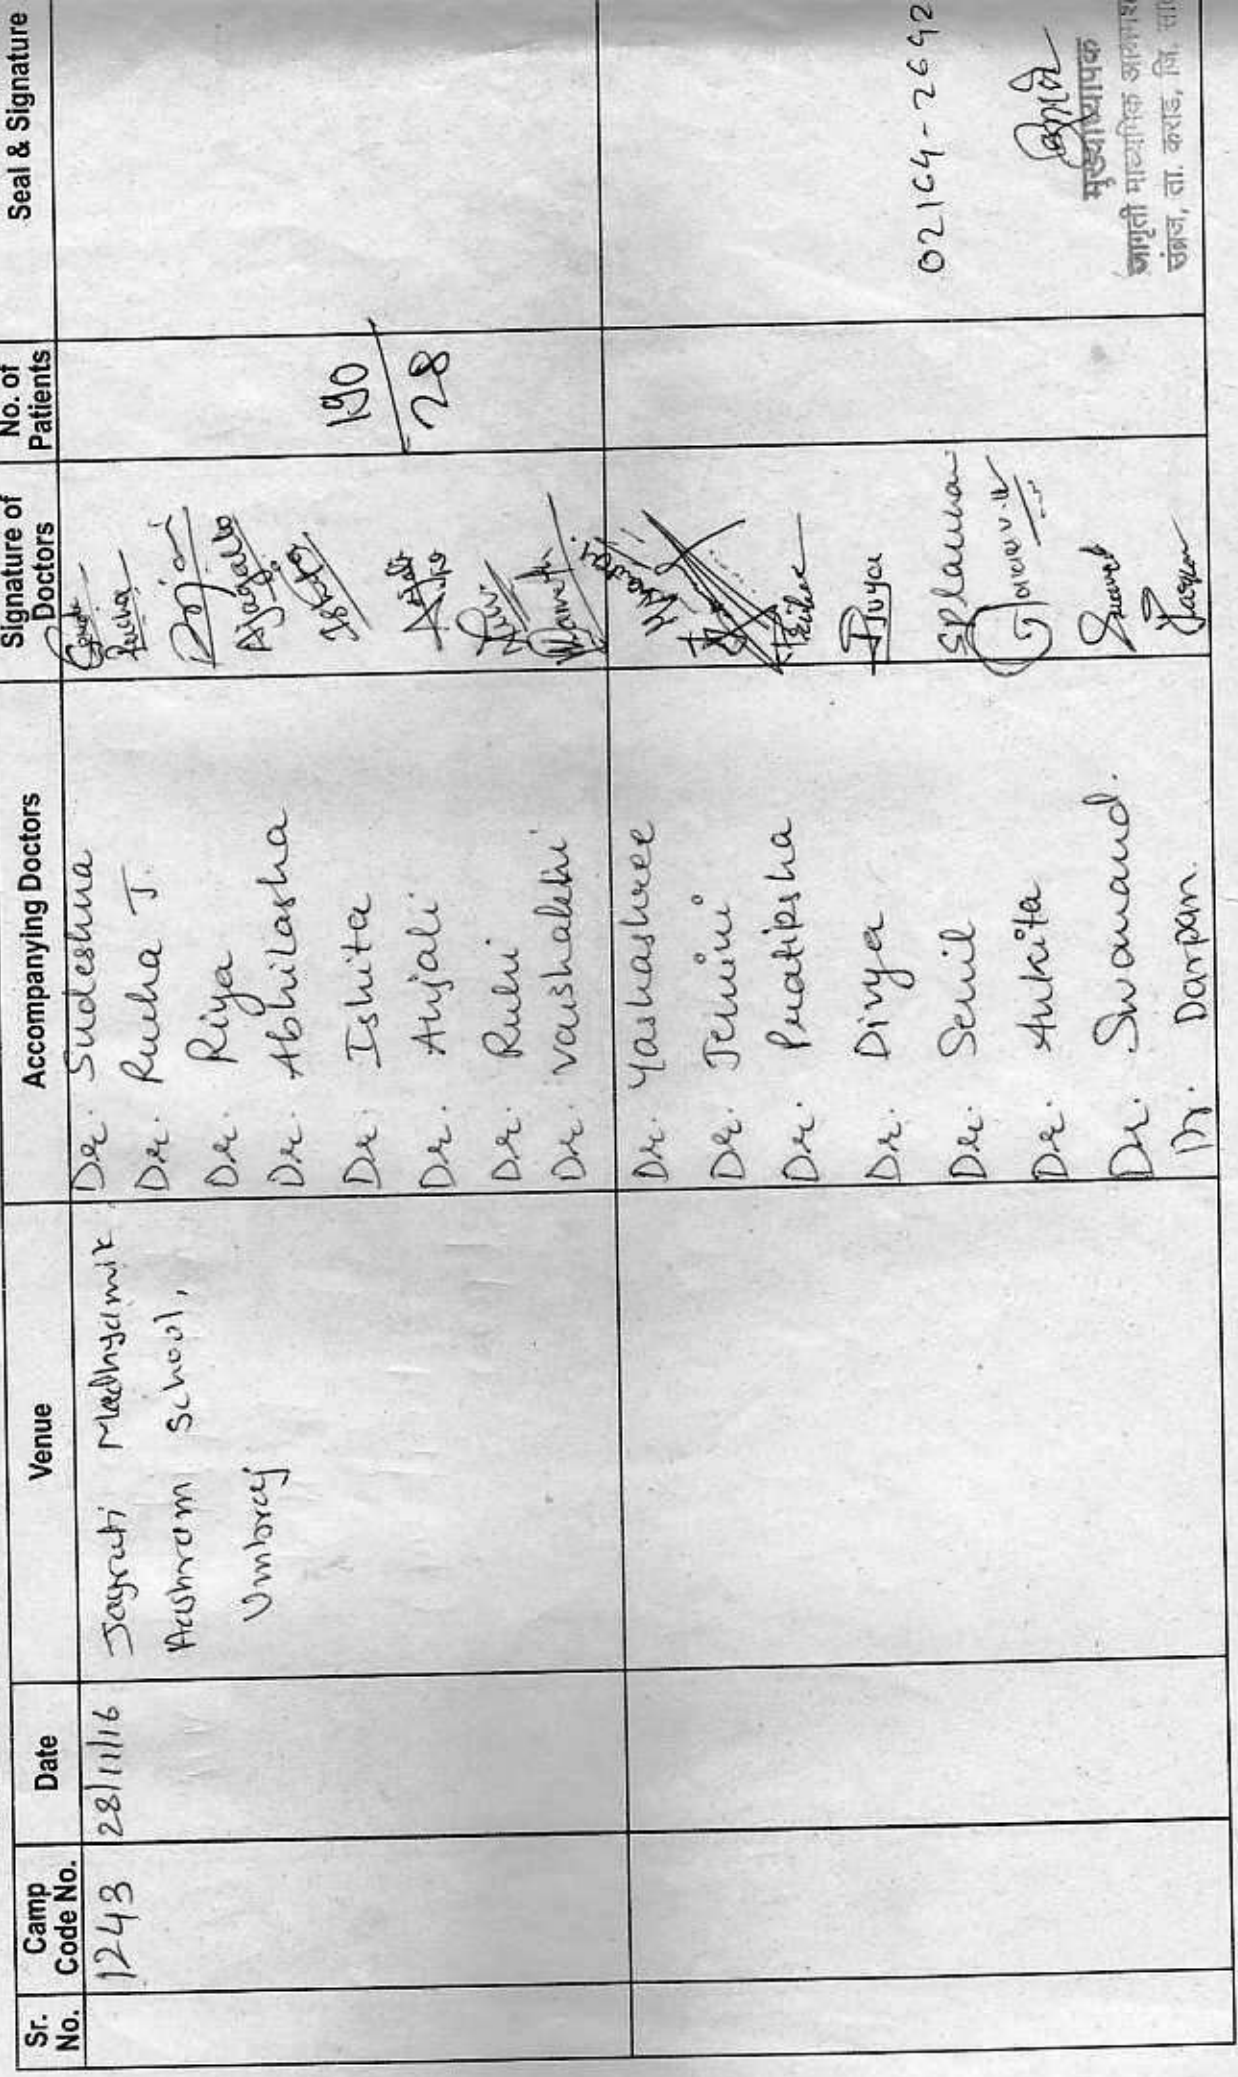 Sr. No.
Camp Code No.
Date
Venue
Accompanying Doctors
Signature of Doctors
No. of Patients
Seal & Signature
1243
28/11/16
Jagruti Madhyamik
Aashram School,
Umbraj
Dr. Sudeshna
Dr. Rucha J.
Dr. Riya
Dr. Abhilasha
Dr. Ishita
Dr. Anjali
Dr. Ruhi
Dr. Vaishalshi
Dr. Yashashree
Dr. Jemini
Dr. Pratipsha
Dr. Divya
Dr. Senil
Dr. Ankita
Dr. Swanand.
Dr. Darpan.
Rucha
190
28
02164-2642
मुख्याध्यापक
जागृती माध्यमिक
ता. कराड, जि.